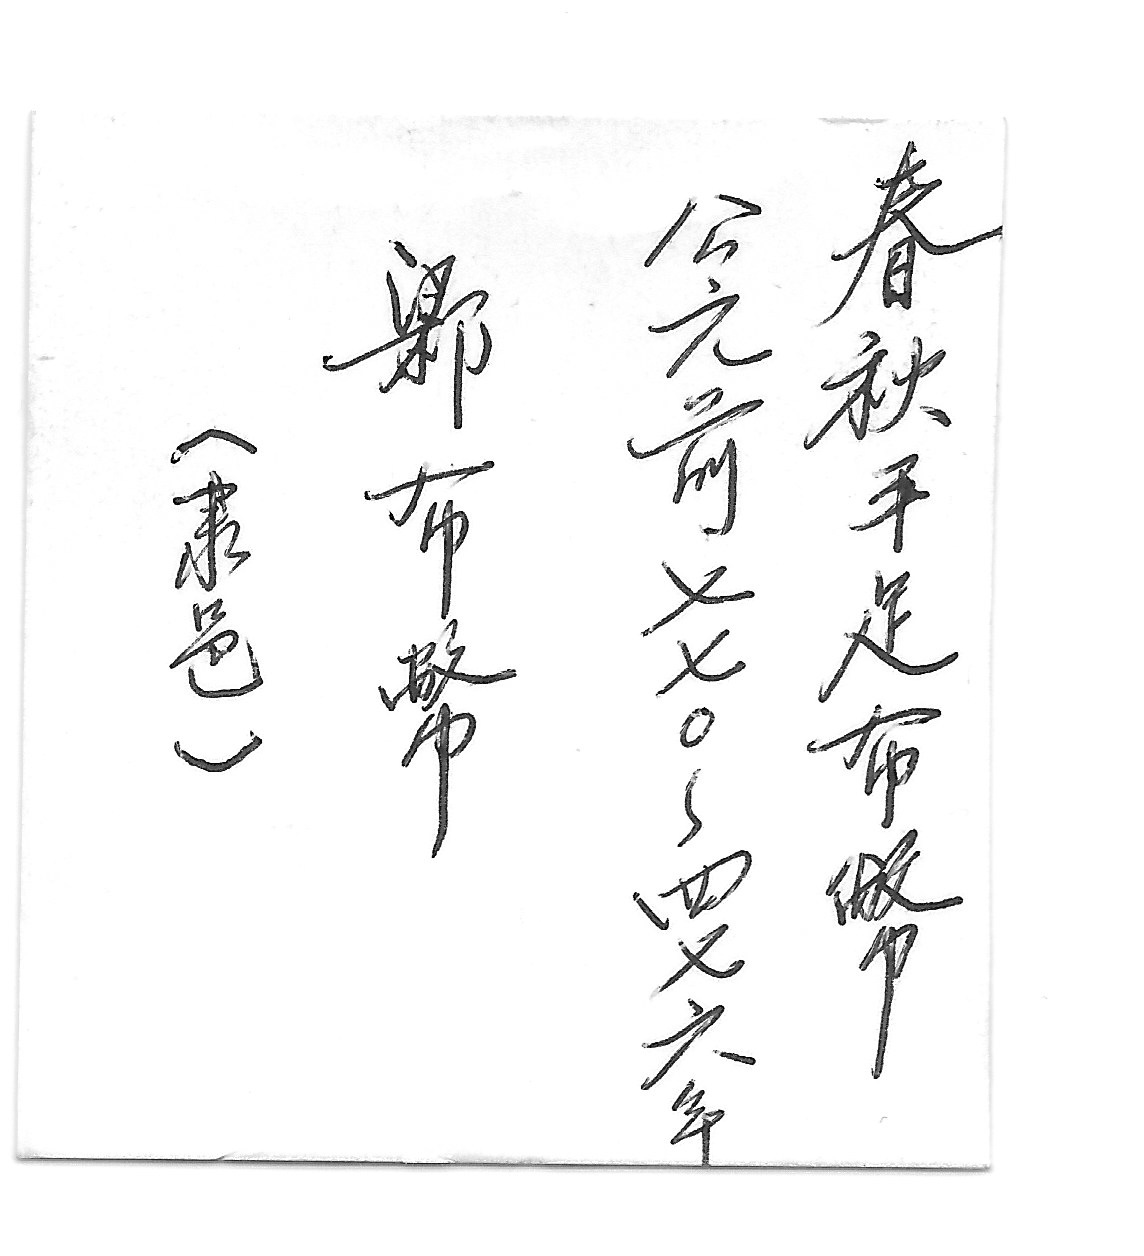 春秋平足布幣
公元前七七0~四七六年
布幣
（邑）